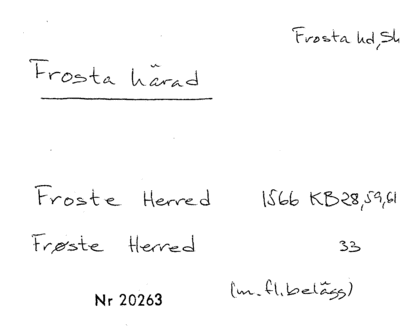 Frosta hd, Sk
Frosta härad
Froste Herred 1566 KB28,59,61
Frøste Herred 33
(m.fl.belägg)
Nr 20263